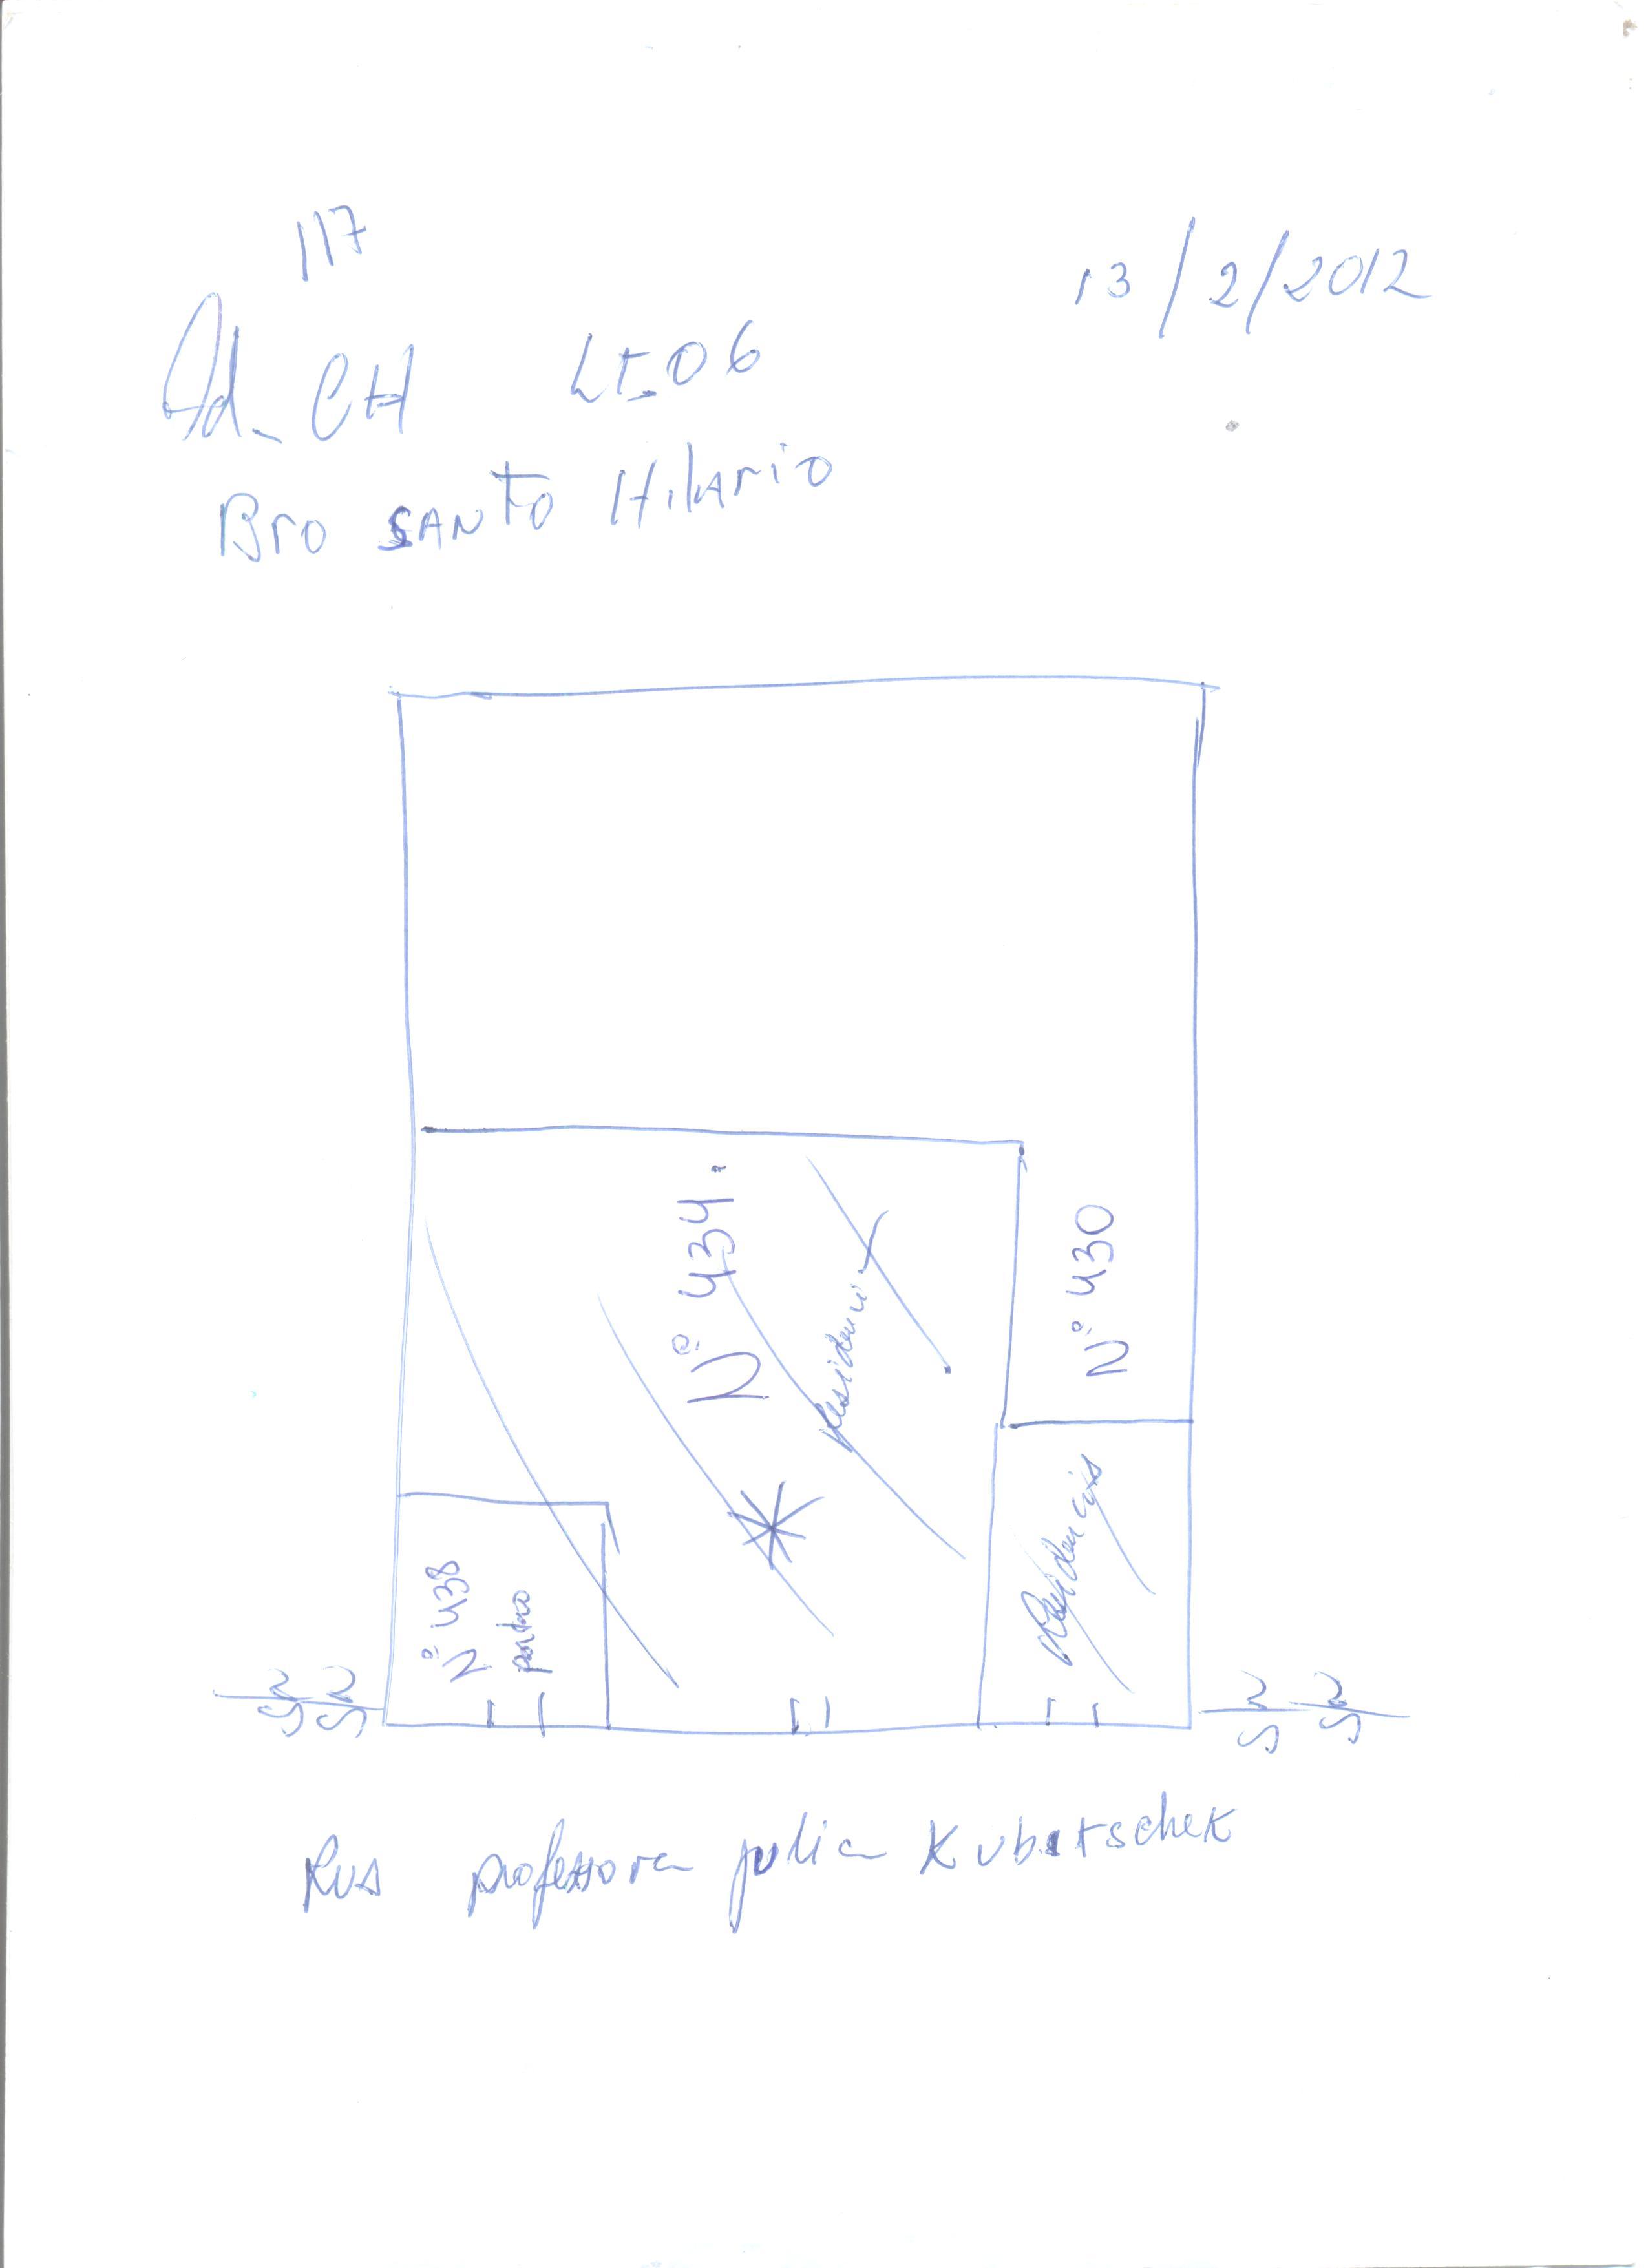 117
13/2/2012
Qd_ CH Lt_06
Bro SANTO HilArio
Nº 434
Residencia
Nº 430
Residencia
Nº 438
Rua professora julia Kubitschek